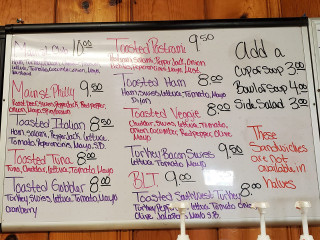 10.00
Mainse Philly 9.50
Roast Beef, Swiss, Pepperjack, Red pepper,
Onion, Mayo,
Toasted Italian 8.50
Ham, Salami, Pepper Jack, Lettuce,
Tomato, Pepperoncini, Mayo, S.B.
Toasted Tuna 8.00
Tuna, Cheddar, Lettuce, Tomato, Mayo
Toasted Gobbler 8.50
Turkey, Swiss, Lettuce, Tomato, Mayo
Cranberry
Toasted Pastrami 9.50
Pastrami, Salami, Pepper Jack, Onion
Pickles, Pepperoncini, Mayo, Must.
Toasted Ham 8.00
Ham, Swiss, Lettuce, Tomato, Mayo
Dijon
Toasted Veggie 8.00
Cheddar, Swiss, Lettuce, Tomato,
Onion, Cucumber, Red Pepper, Olive,
Mayo
Turkey Bacon Swiss 9.50
Lettuce Tomato Mayo
BLT 9.00
Bacon, Lettuce, Tomato, Mayo
Toasted Southwest Turkey 8.50
Turkey, Pepper Jack, Lettuce, Tomato, Onion
Olive, Jalapeño, Mayo, S.B.
Add a
Cup of Soup 3.00
Bowl of Soup 4.00
Side Salad 3.00
These
Sandwiches
are not
available in
halves